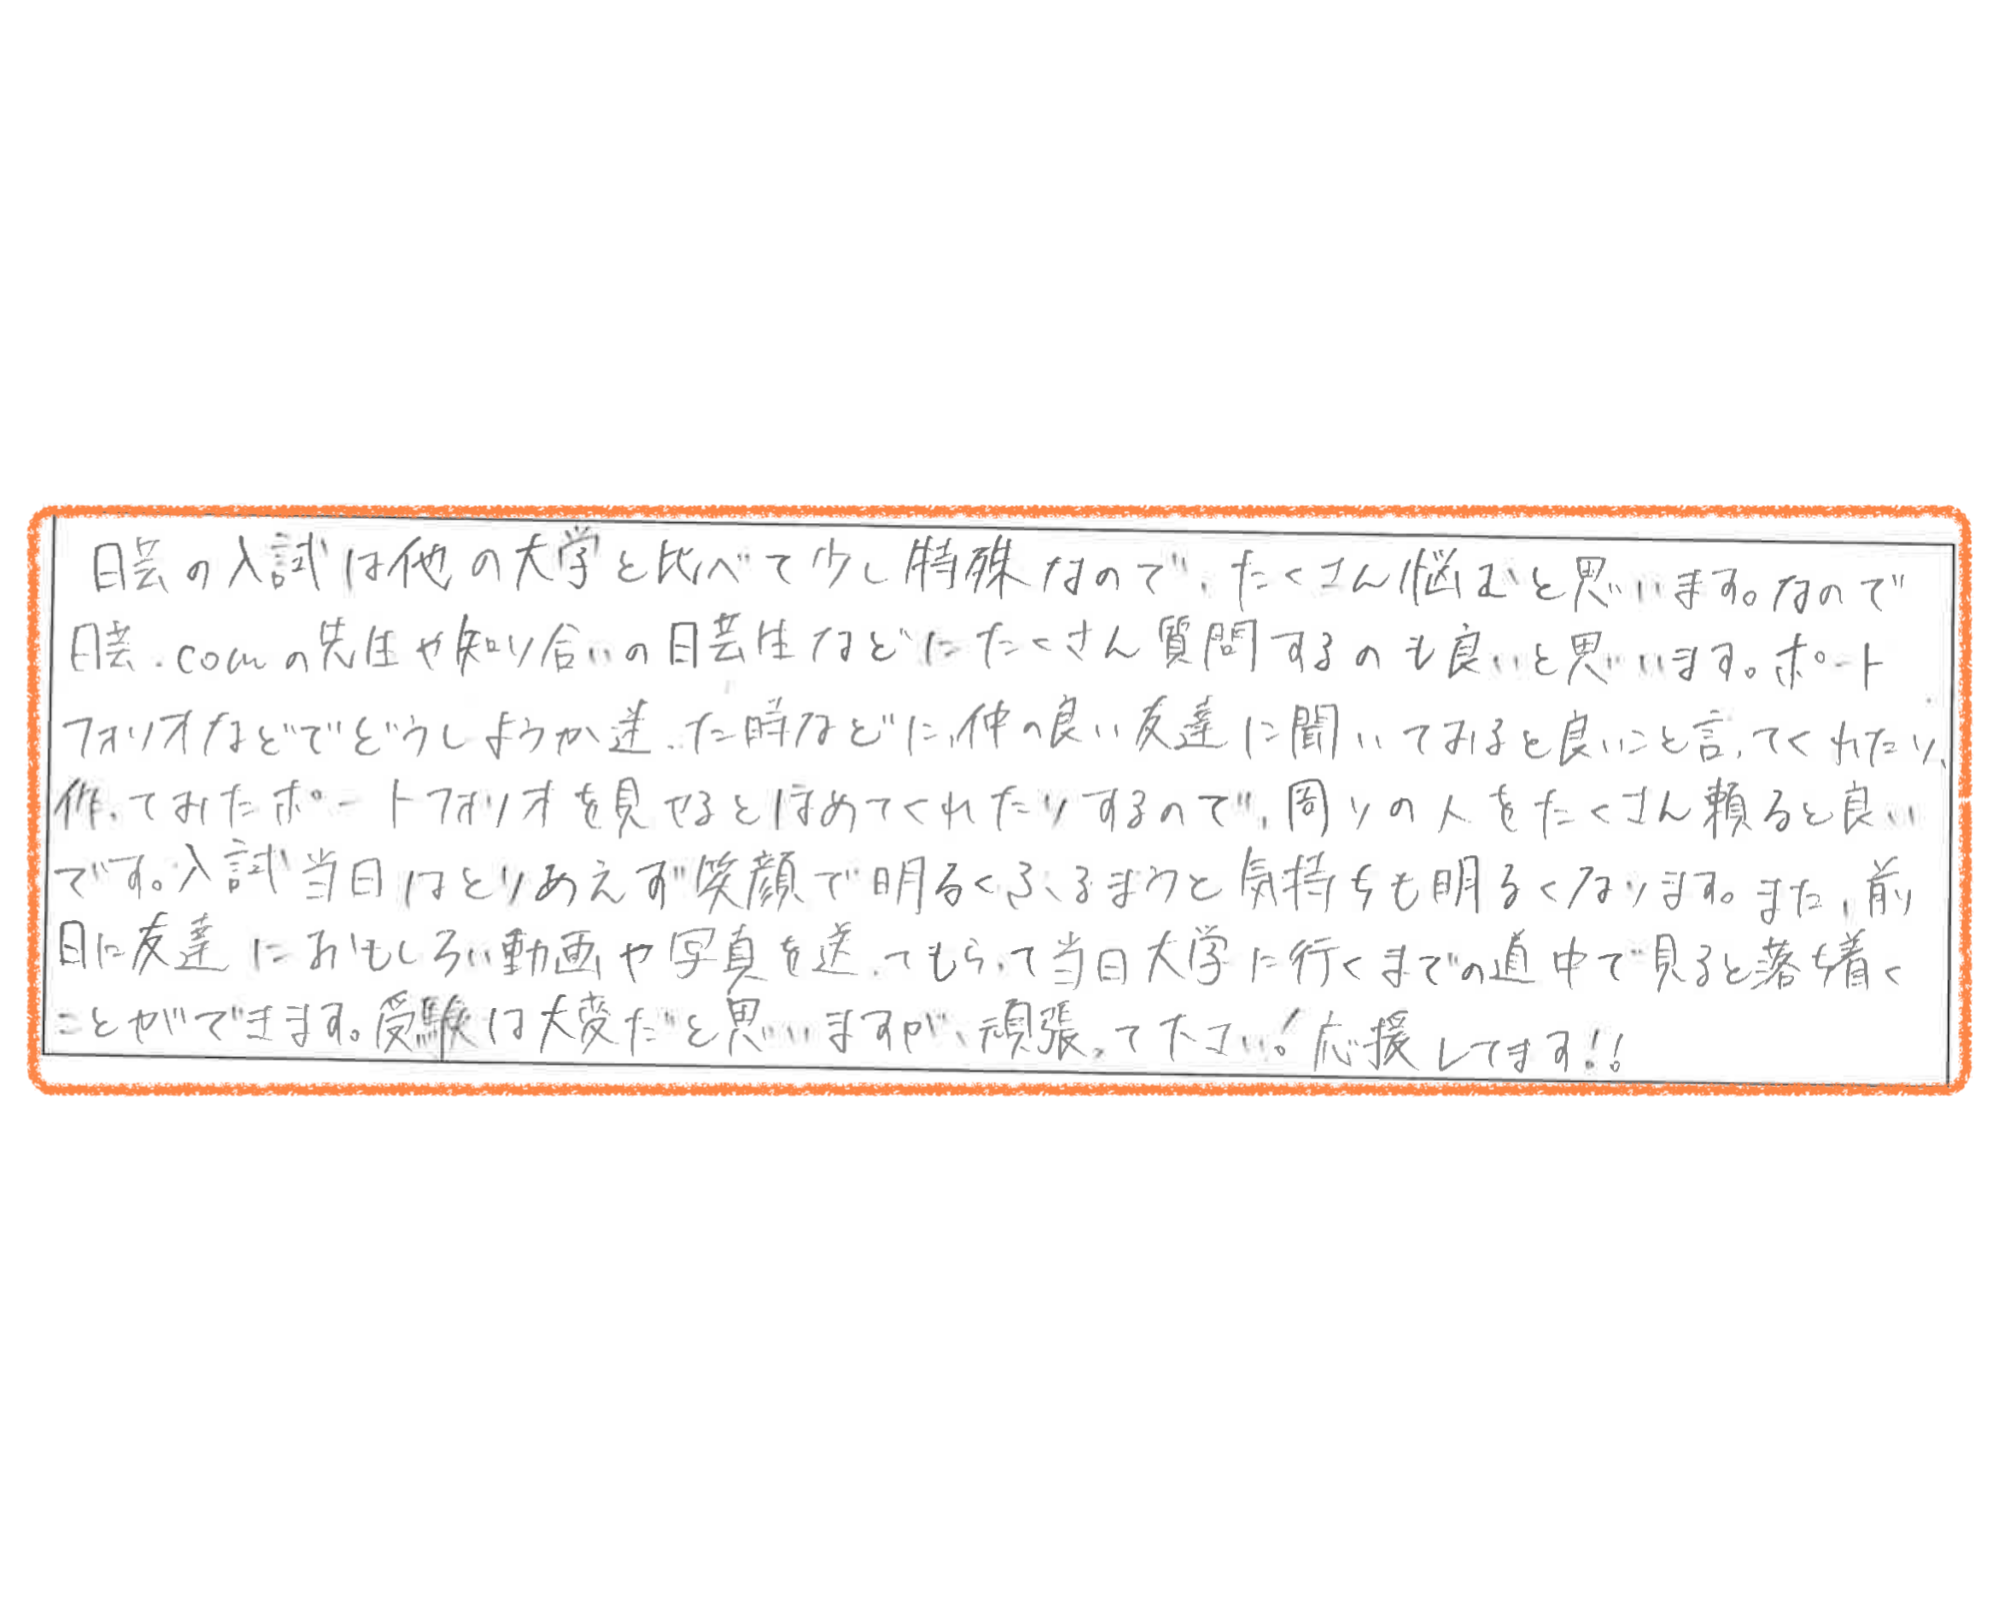 日芸の入試は他の大学と比べて少し特殊なので、たくさん悩むと思います。なので
日芸.comの先生や知り合いの日芸生などにたくさん質問するのも良いと思います。ポート
フォリオなどでどうしようか迷った時などに、仲の良い友達に聞いてみると良いこと言ってくれたり、
作ってみたポートフォリオを見せるとほめてくれたりするので、周りの人をたくさん頼ると良い
です。入試当日はとりあえず笑顔で明るくふるまうと気持ちも明るくなります。また、前
日に友達におもしろい動画や写真を送ってもらって当日大学に行くまでの道中で見ると落ち着く
ことができます。受験は大変だと思いますが、頑張って下さい!応援してます!!